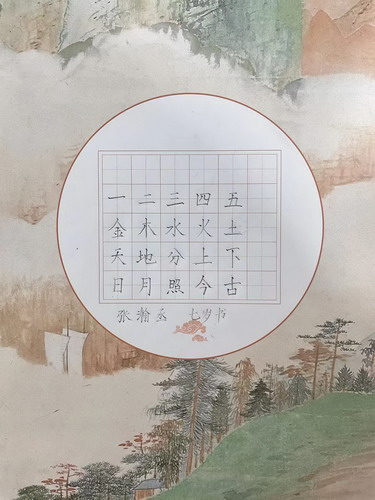 一二三四五
金木水火土
天地分上下
日月照今古
张瀚丞 七岁书